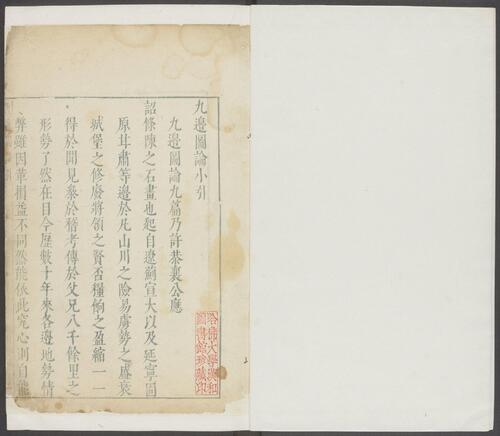 九邊圖論小引
九邊圖論九篇乃許恭襄公應
詔條陳之石畫也起自遼薊宣大以及延寧固
原甘肅等邊於凡山川之險易虜勢之盛衰
城堡之修廢將領之賢否糧餉之盈縮一一
得於聞見參於稽考傳於父兄八千餘里之
形勢了然在目今歷數十年來各邊地勢情
弊雖因革損益不同然能依此究心則自能
哈佛大學漢和
圖書館珍藏印